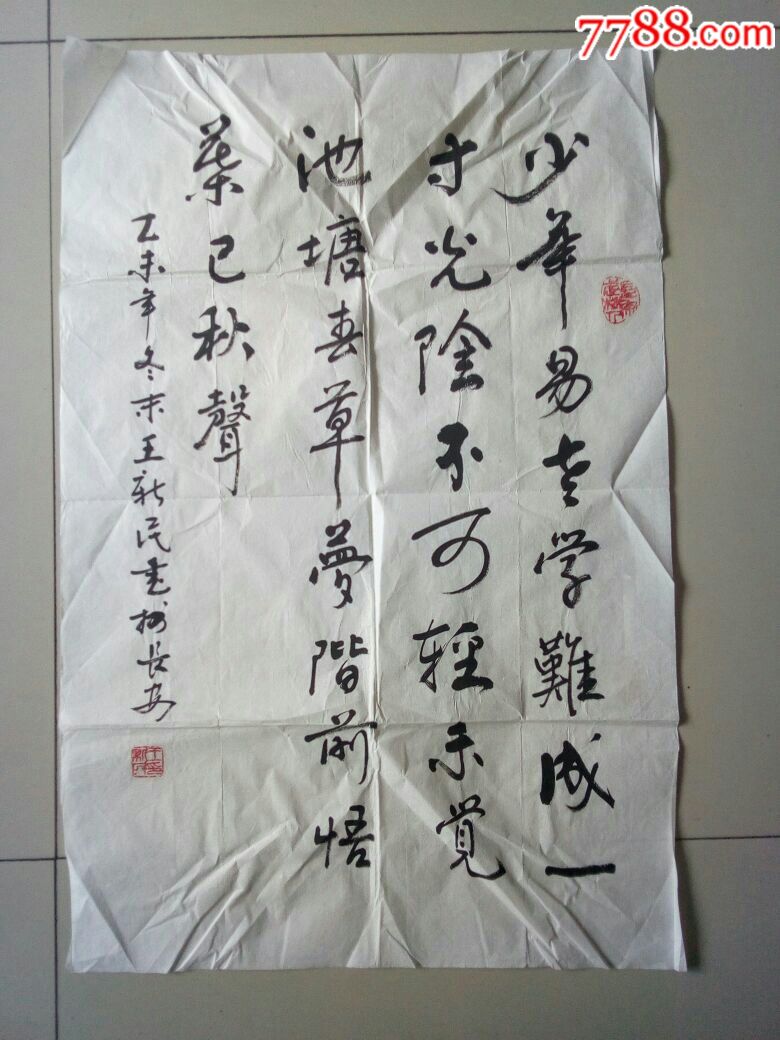 7788.com
少年易老学難成一
寸光陰不可輕未覺
池塘春草夢階前悟
葉已秋聲
乙未年冬末王新民書於長安